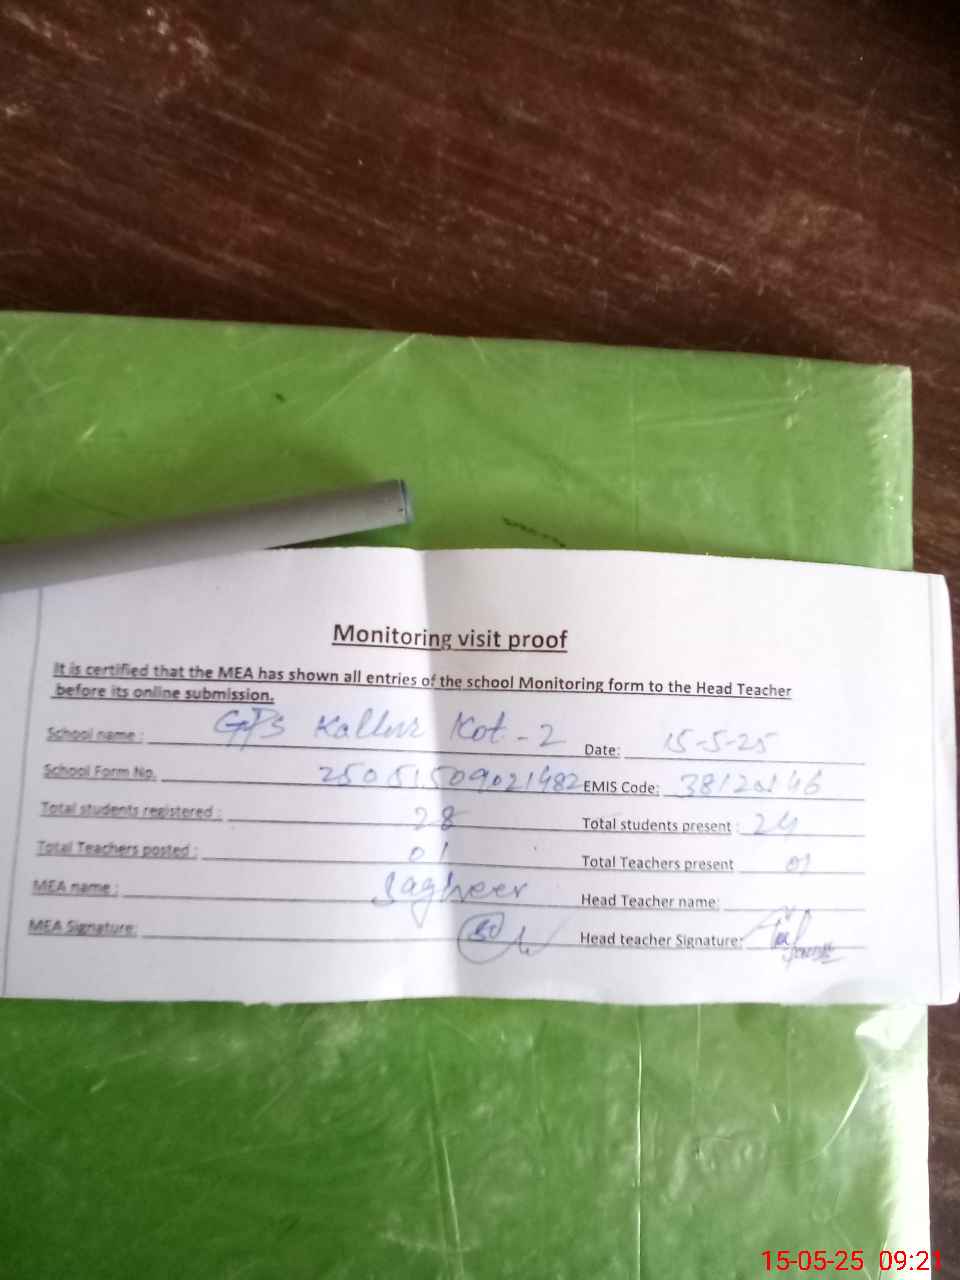 Monitoring visit proof
It is certified that the MEA has shown all entries of the school Monitoring form to the Head Teacher
before its online submission.
School name : GPS Kallur Kot - 2 Date: 15-5-25
School Form No. 25051509021482 EMIS Code:
Total students registered : 28 Total students present : 24
Total Teachers posted : 01 Total Teachers present 01
MEA name : Sagheer Head Teacher name:
MEA Signature: Head teacher Signature:
15-05-25 09:21